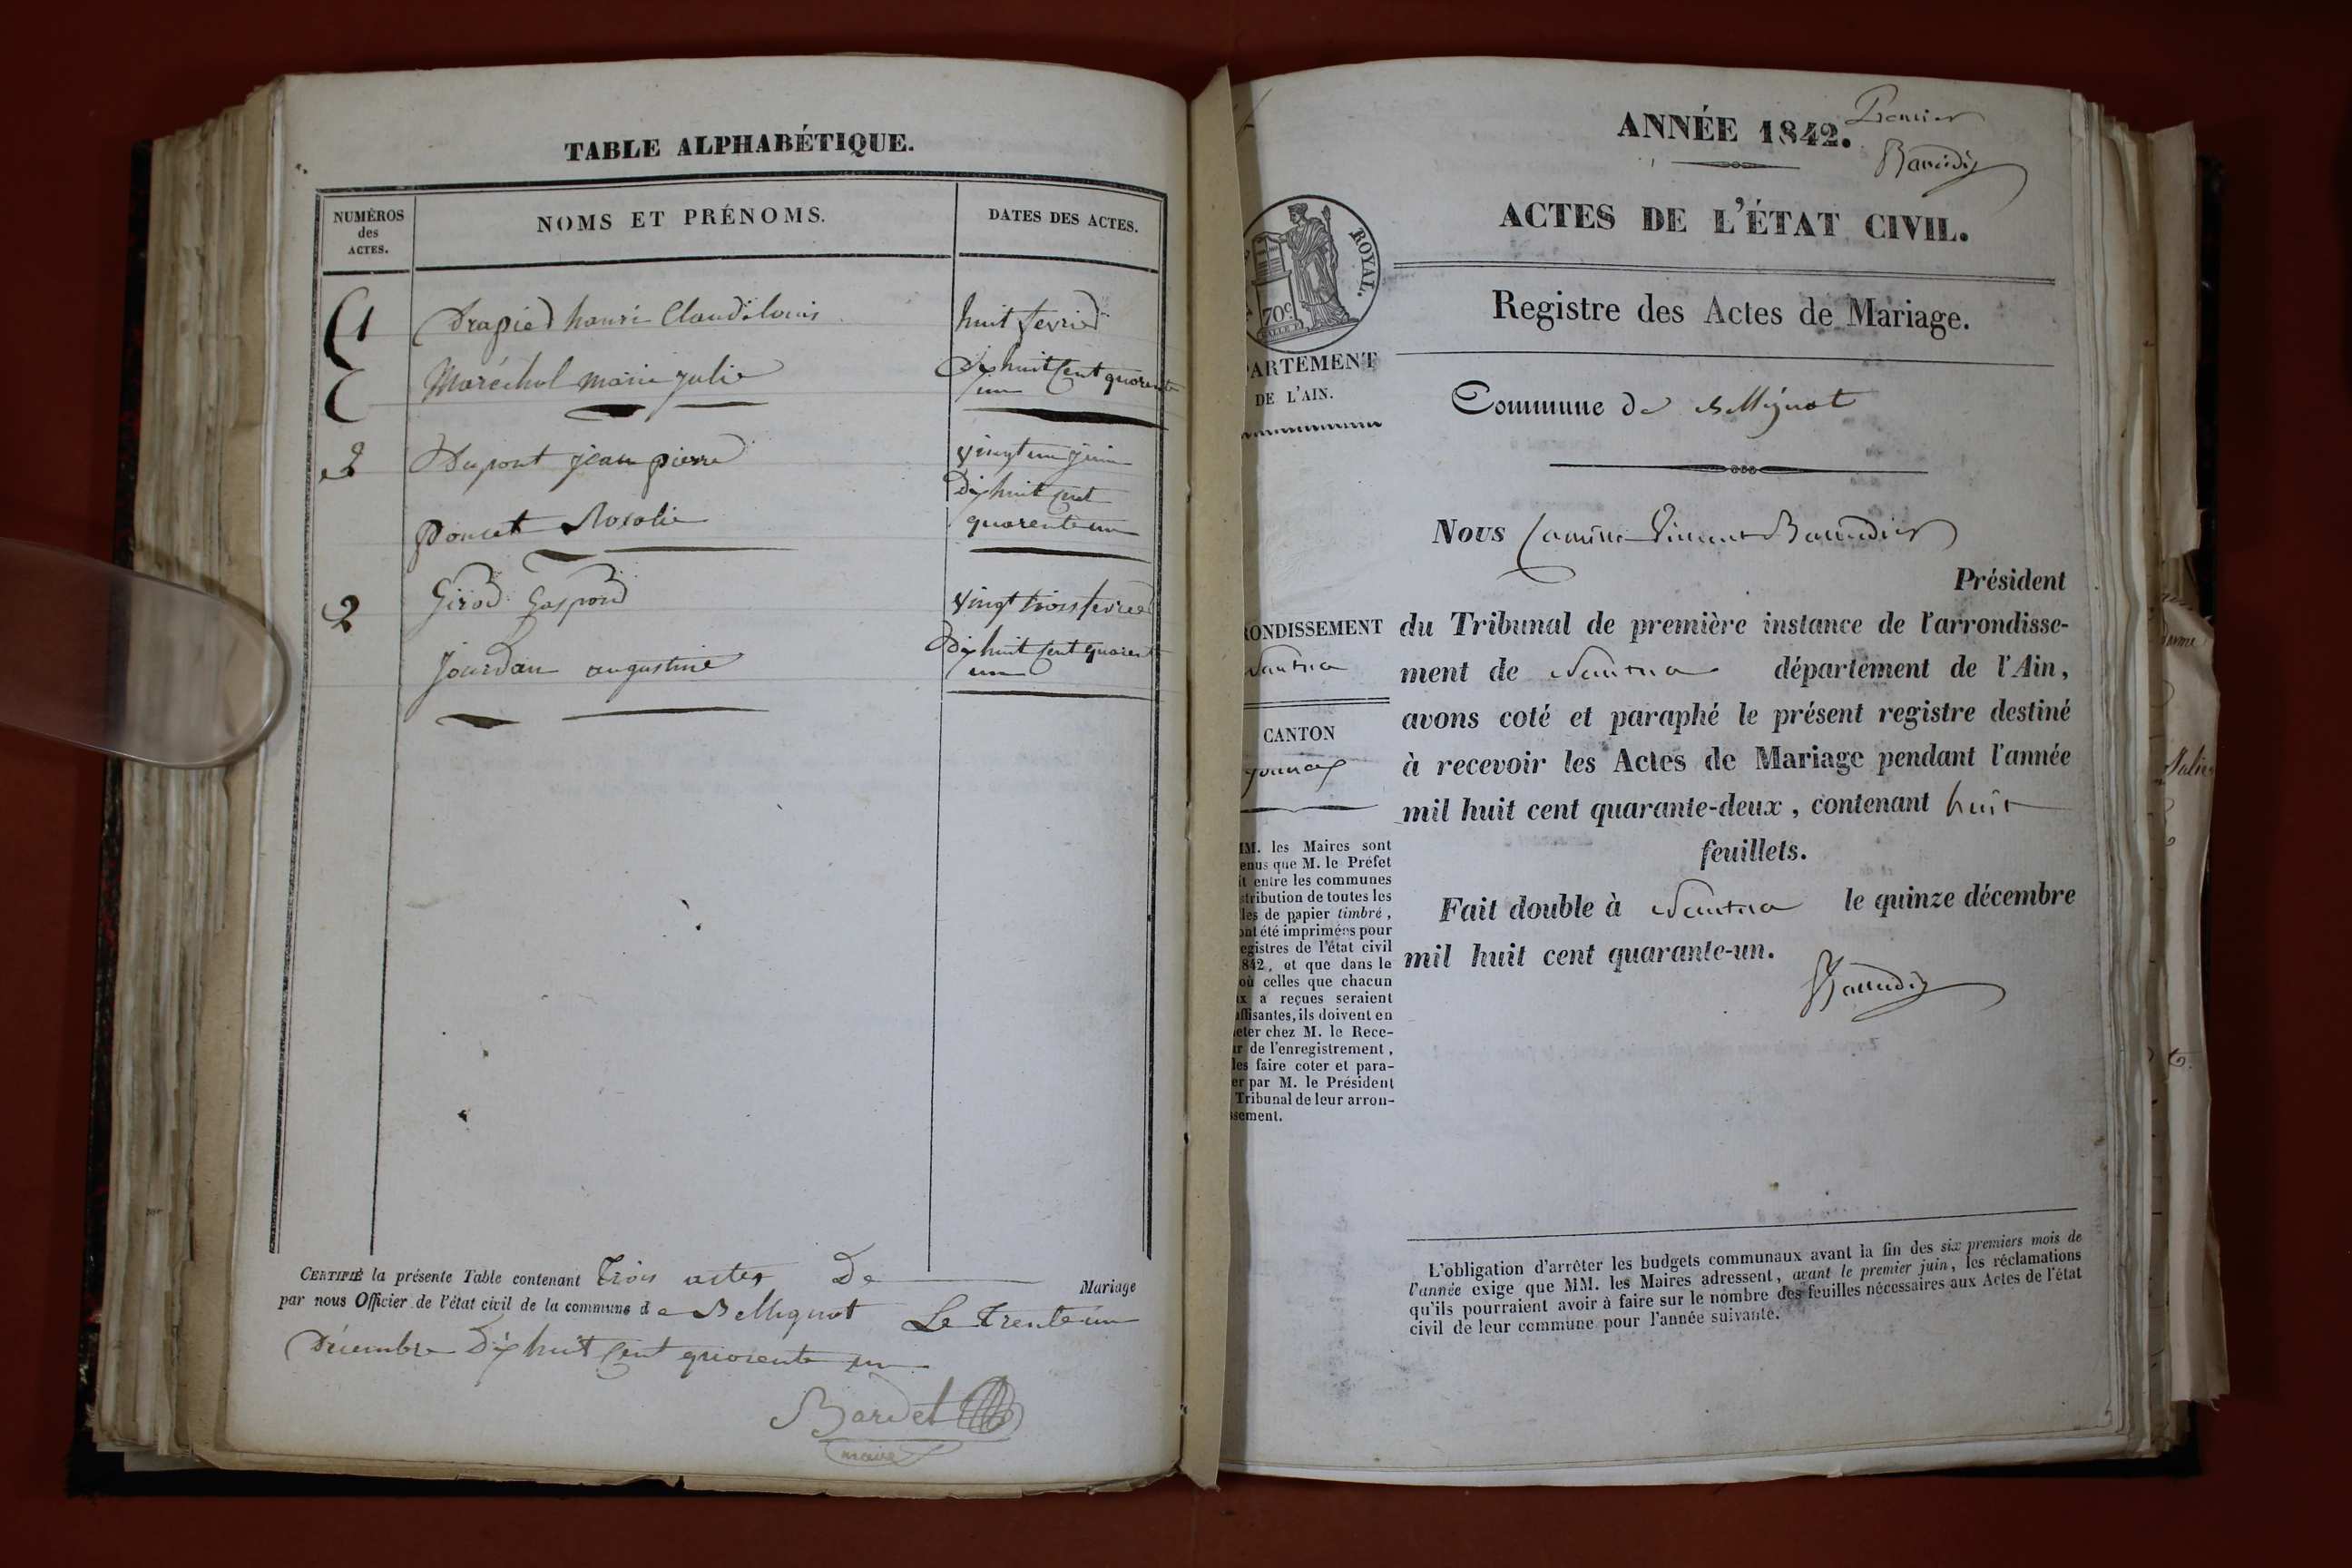 TABLE ALPHABÉTIQUE.
NUMÉROS
des
ACTES.
NOMS ET PRÉNOMS.
DATES DES ACTES.
1 Drapied henri Claude louis huit fevried
Maréchal marie julie dix huit cent quorente
un
3 Dupont jean pierre vingt un juin
Dix huit cent
poncet Rosalie quorente un
2 Girod Gaspard vingt trois fevried
Jourdan augustine Dix huit cent quorente
un
CERTIFIÉ la présente Table contenant trois actes De Mariage
par nous Officier de l'état civil de la commune de Bellignat Le trente un
Décembre Dix huit cent quorente un
Bardet
maire
ANNÉE 1842.
Premier
Baudin
ACTES DE L'ÉTAT CIVIL.
ROYAL.
70c
Registre des Actes de Mariage.
PARTEMENT
DE L'AIN.
Commune de Bellignat
Nous Camille Vincent
Président
RONDISSEMENT
Nantua
CANTON
yonnax
du Tribunal de première instance de l'arrondisse-
ment de Nantua département de l'Ain,
avons coté et paraphé le présent registre destiné
à recevoir les Actes de Mariage pendant l'année
mil huit cent quarante-deux, contenant huit
feuillets.
Fait double à Nantua le quinze décembre
mil huit cent quarante-un.
MM. les Maires sont
enus que M. le Préfet
it entre les communes
stribution de toutes les
les de papier timbré,
ont été imprimées pour
egistres de l'état civil
842, et que dans le
où celles que chacun
ux a reçues seraient
ffisantes, ils doivent en
eter chez M. le Rece-
ur de l'enregistrement,
les faire coter et para-
er par M. le Président
Tribunal de leur arron-
ssement.
L'obligation d'arrêter les budgets communaux avant la fin des six premiers mois de
l'année exige que MM. les Maires adressent, avant le premier juin, les réclamations
qu'ils pourraient avoir à faire sur le nombre des feuilles nécessaires aux Actes de l'état
civil de leur commune pour l'année suivante.